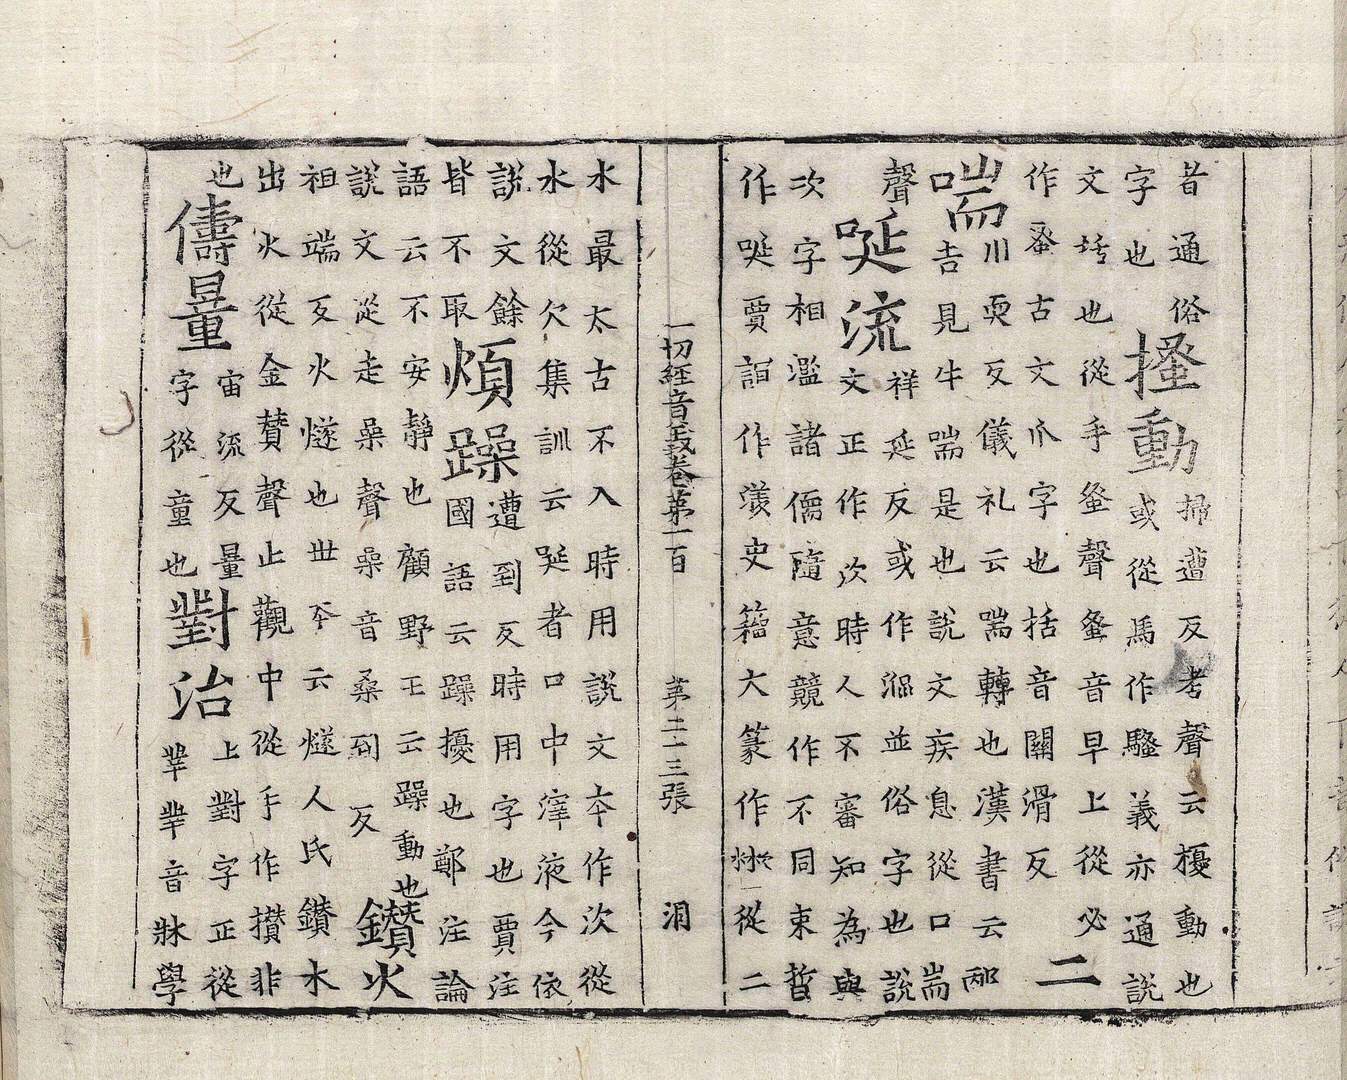 昔通俗
字也
搔動
掃遭反考聲云擾動也
或從馬作騷義亦通說
文括也從手蚤聲蚤音早上從必
作蚤古文爪字也括音關滑反
二
喘
川耎反儀礼云喘轉也漢書云郍
吉見牛喘是也說文疾息從口耑
聲
唌流
祥延反或作並俗字也說
文正作㳄時人不審知為與
次字相濫諸儒隨意競作不同束晳
作唌賈誼作羡史籀大篆作從二
一切經音義卷第一百 第二十三張 洞
水最太古不入時用說文夲作㳄從
水從欠集訓云唌者口中滓液今依
說文餘
皆不取
煩躁
遭到反時用字也賈注
國語云躁擾也鄭注論
語云不安靜也顧野王云躁動也
說文從走喿聲喿音桑到反
鑽火
祖端反火燧也丗夲云燧人氏鑽木
出火從金贊聲止觀中從手作攢非
也
儔量
宙流反量
字從童也
對治
上對字正從
丵丵音牀學